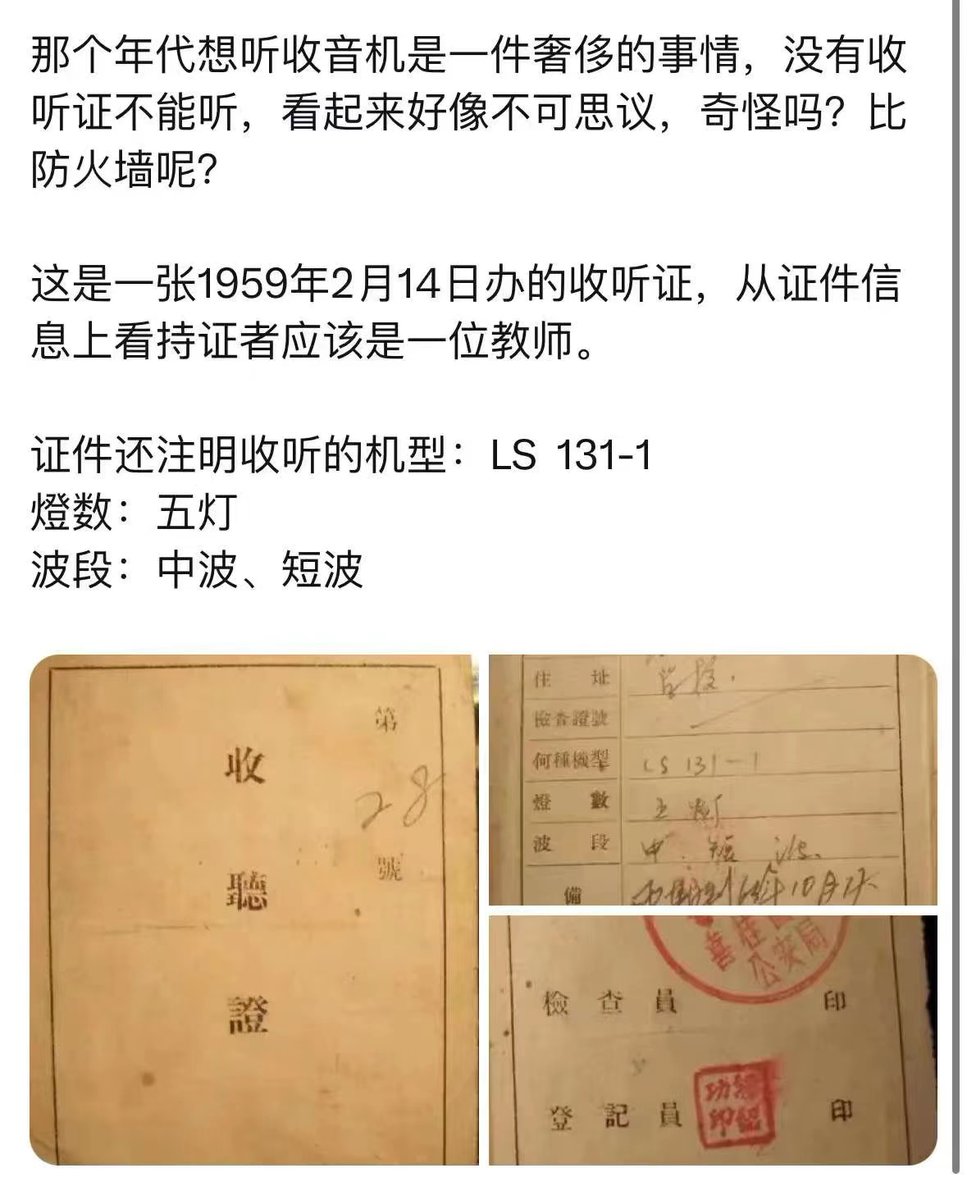 那个年代想听收音机是一件奢侈的事情，没有收
听证不能听，看起来好像不可思议，奇怪吗？比
防火墙呢？
这是一张1959年2月14日办的收听证，从证件信
息上看持证者应该是一位教师。
证件还注明收听的机型：LS 131-1
燈数：五灯
波段：中波、短波
第 28 號
收聽證
住址
檢查證號
何種機型 LS 131-1
燈數 五灯
波段 中．短波．
備 10月
公安局
檢查員 印
登記員 印